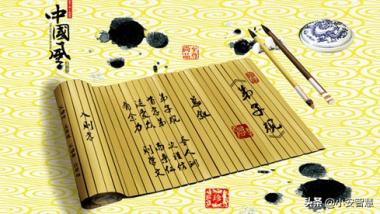 中國風
《弟子规》
总叙
弟子规 圣人训
首孝弟 次谨信
泛爱众 而亲仁
有余力 则学文
入则孝
头条 @小安智慧